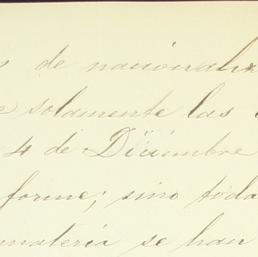 de nacionali
solamente las
4 de Diciembre
forme; sino toda
materia se han